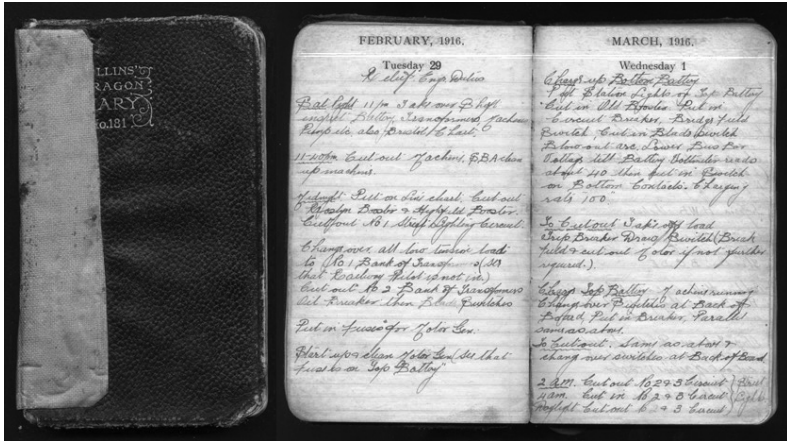 LLINS'
RAGON
ARY
No.181
FEBRUARY, 1916.
Tuesday 29
Relief Eng. Duties
11 pm Take over Shift
Battery Transformers Machines
Pumps etc, also
11-40pm Cut out Machine, clean
up machine.
Midnight Put on Line chart. Cut out
Booster & Highfield Booster.
Cut out No 1 Street Lighting Circuit.
Change over all low tension load
to No 1 Bank of Transf (See
that Railway Pilot is not in.)
Cut out No 2 Bank of Transformers
Oil Breaker then Blade Switches
Put in fuses for Motor Gen.
Start up & clean Motor Gen (See that
fuse is on Top Battery"
MARCH, 1916.
Wednesday 1
Charge up Bottom Battery
Put Station Lights on Top Battery
Cut in Old Booster Put in
Circuit Breaker, Bridge field
Switch, Cut in Blade Switch
Blow out arc, Lower Bus Bar
Voltage till Battery Voltmeter reads
about 40 then put in Switch
on Bottom Contacts. Charging
rate 100
To Cut out Take off load
Trip Breaker Draw Switch (Break
field & cut out Motor if not further
required.)
Charge Top Battery Machine running
Change over Switches at Back of
Board, Put in Breaker, Parallel
same as above.
To Cut out. Same as above &
change over switches at Back of Board
2 A.M. Cut out No 2 & 3 Circuit } Street
4 am. Cut in No 2 & 3 Circuit } Lights
Daylight Cut out No 2 & 3 Circuit }